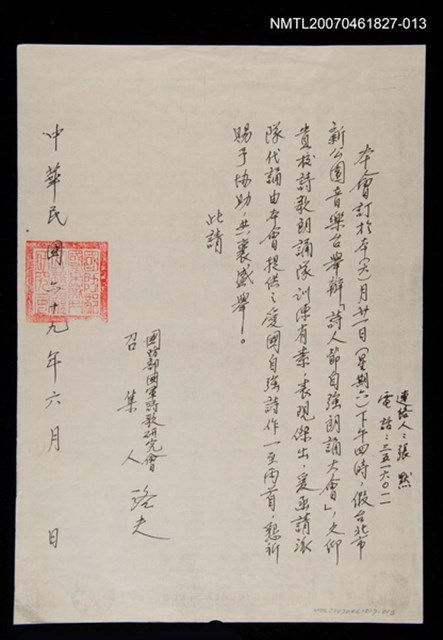 NMTL20070461827-013
連絡人：張默
電話：三五一六〇一
本會訂於本(六)月廿一日(星期六)下午四時，假台北市
新公園音樂台舉辦「詩人節自強朗誦大會」，久仰
貴校詩歌朗誦隊訓練有素，表現傑出，爰函請派
隊代誦由本會提供之愛國自強詩作一至兩首，懇祈
賜予協助，共襄盛舉。
此請
國防部國軍詩歌研究會
召集人 路夫
中華民國六十九年六月 日